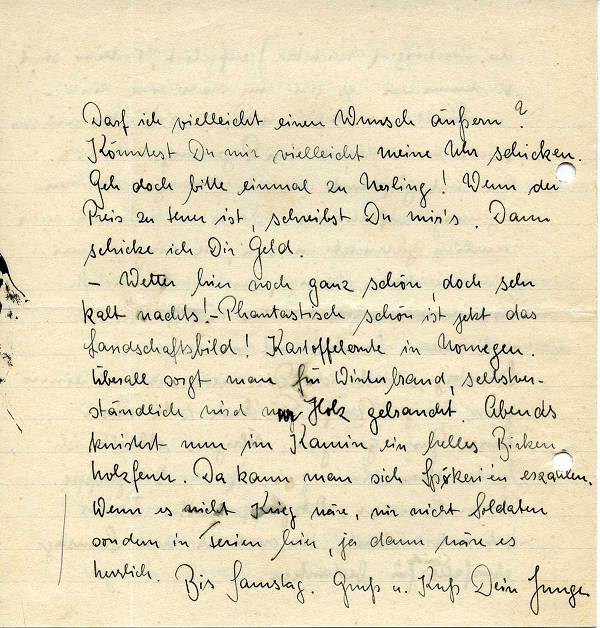 Darf ich vielleicht einen Wunsch äußern?
Könntest Du mir vielleicht meine Uhr schicken.
Geh doch bitte einmal zu Nerling! Wenn der
Preis zu teuer ist, schreibst Du mir's. Dann
schicke ich Dir Geld.
- Wetter hier noch ganz schön, doch sehr
kalt nachts! - Phantastisch schön ist jetzt das
Landschaftsbild! Kartoffelernte in Norwegen.
Überall sorgt man für Winterbrand, selbstver-
ständlich wird nur Holz gebraucht. Abends
knistert nun im Kamin ein helles Birken-
holzfeuer. Da kann man sich Spøkerien erzählen.
Wenn es nicht Krieg wäre, wir nicht Soldaten
sondern in Ferien hier, ja dann wäre es
herrlich. Bis Samstag. Gruß u. Kuß Dein Junge